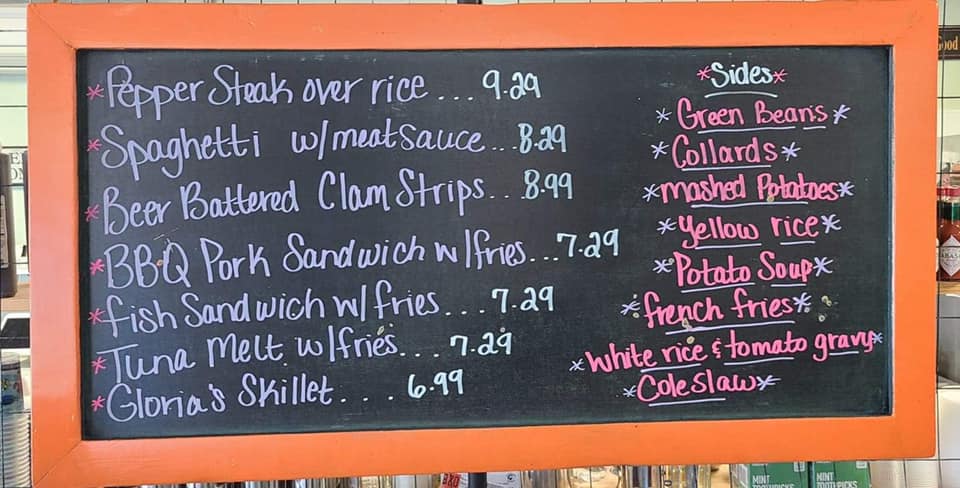 *Pepper Steak over rice ... 9.29
*Spaghetti w/meatsauce...8.29
*Beer Battered Clam Strips...8.99
*BBQ Pork Sandwich w/fries...7.29
*fish Sandwich w/fries...7.29
*Tuna Melt w/fries...7.29
*Gloria's Skillet....6.99
*Sides*
*Green Beans*
*Collards*
*mashed Potatoes*
*Yellow rice*
*Potato Soup*
*french fries*
*White rice & tomato gravy*
*Coleslaw*
MINT
TOOTHPICKS
MINT
TOOTHPICKS